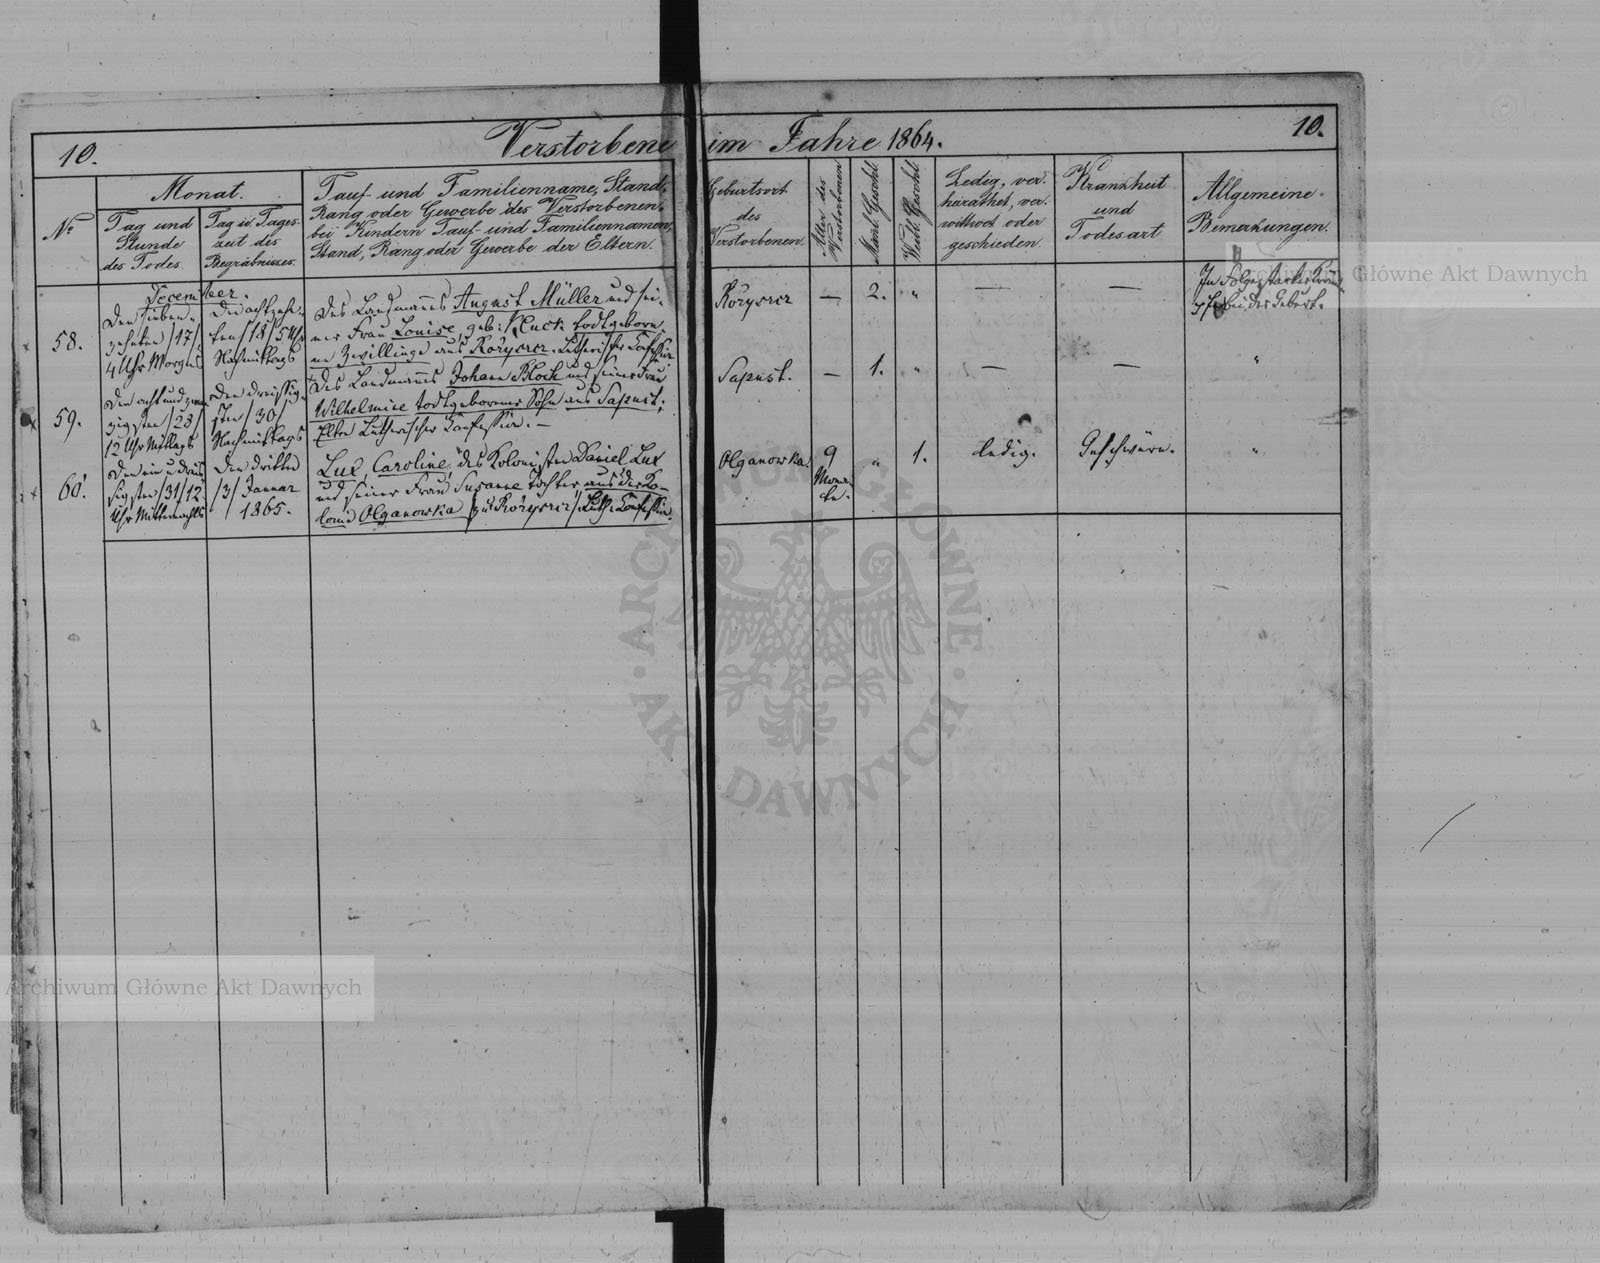 10.
Verstorbene im Jahre 1864.
10.
No
Monat.
Tag und
Stunde
des Todes.
Tag u. Tages-
zeit des
Begräbnisses.
Tauf- und Familienname, Stand,
Rang oder Gewerbe des Verstorbenen,
bei Kindern Tauf- und Familiennamen,
Stand, Rang oder Gewerbe der Eltern.
Geburtsort
des
Verstorbenen.
Alter des
Verstorbenen
Mänl. Geschl.
Weibl. Geschl.
Ledig, ver-
heirathet, ver-
wittwet oder
geschieden.
Krankheit
und
Todesart
Allgemeine
Bemerkungen.
December.
58.
Den sieben-
zehnten /17/
4 Uhr Morgens
Den achtzehn-
ten /18/ 5 Uhr
Nachmittags
Des Landmanns August Müller und sei-
ner Frau Louise, geb: Kluck todtgebore-
ne Zwillinge aus Rożyszcz. Lutherischer Confession
Rożyszcz
—
2.
"
—
—
In Folge starker
bei der Geburt.
59.
Den acht und zwan-
zigsten /28/
12 Uhr Mittags
Den dreissig-
sten /30/
Nachmittags
Des Landmanns Johann Block und seiner Frau
Wilhelmine todtgeborener Sohn aus Sapust;
Eltern Lutherischer Confession. —
Sapust.
—
1.
"
—
—
"
60.
Den ein u. dreis-
sigsten /31/ 12
Uhr Mitternachts
Den dritten
/3/ Januar
1865.
Lux, Caroline, des Kolonisten Daniel Lux
und seiner Frau Susanne Tochter aus der Ko-
lonie Olganowka /zu Rożyszcz/. Luth. Confession.
Olganowka.
9
Mona-
te.
"
1.
ledig.
Geschwüre.
"
Archiwum Główne Akt Dawnych
Archiwum Główne Akt Dawnych
ARCHIWUM GŁÓWNE · AKT DAWNYCH ·